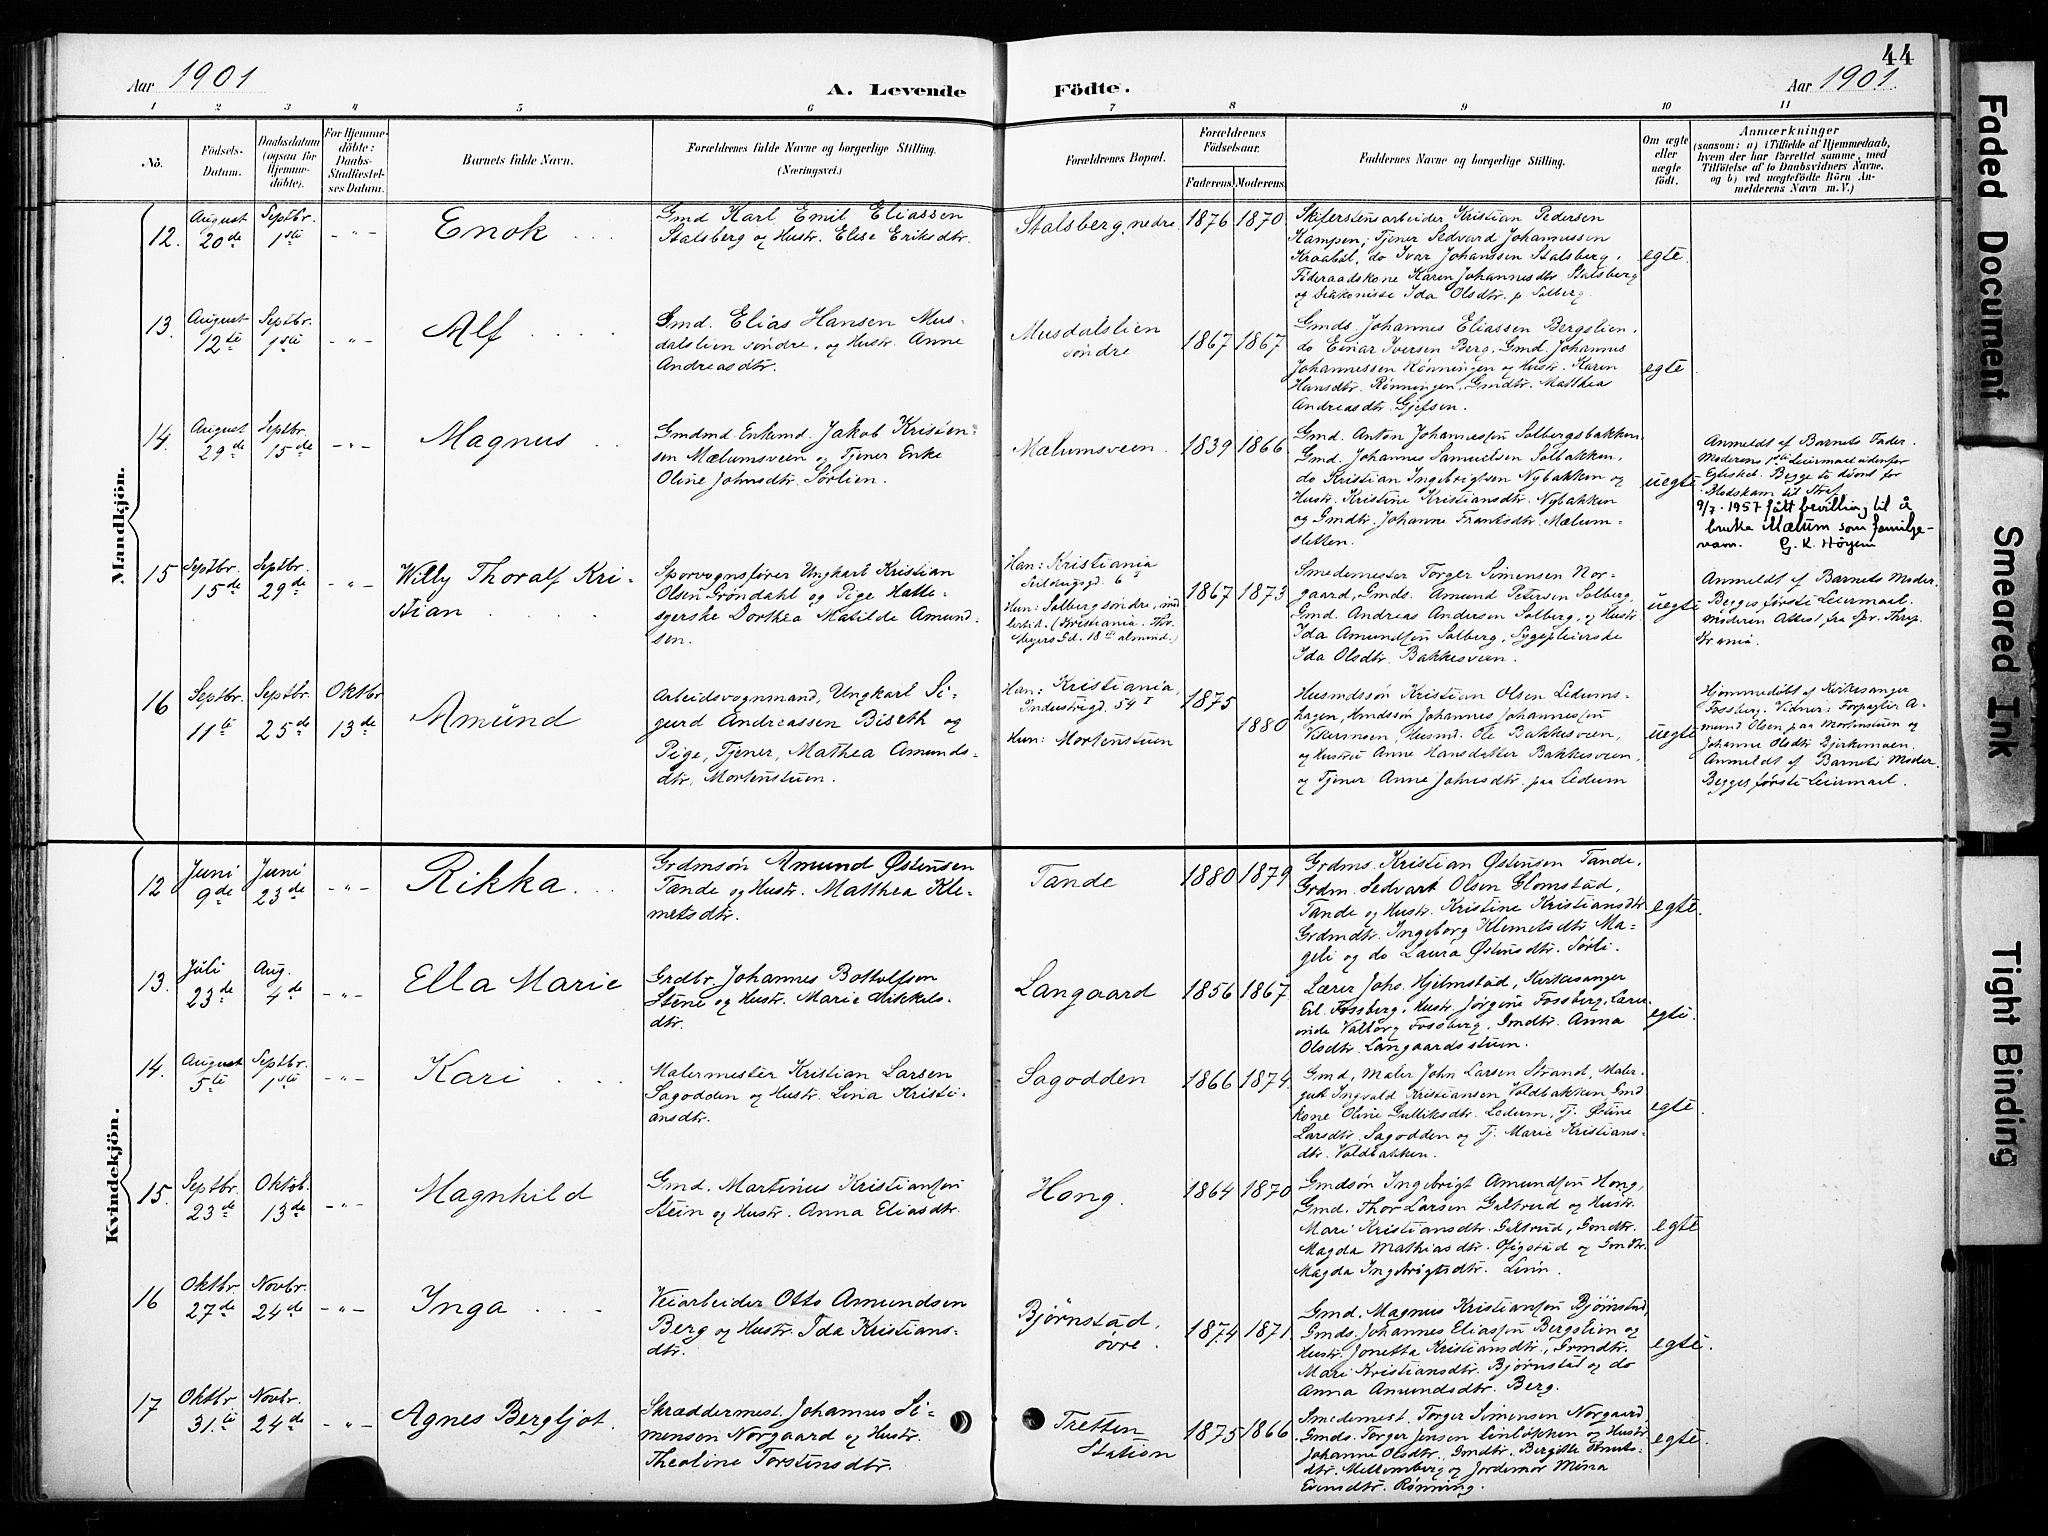 44
Aar 1901
A. Levende Födte.
Aar 1901.
1 2 3 4 5 6 7 8 9 10 11
No.
Födsels-
Datum.
Daabsdatum
(ogsaa for
Hjemme-
döbte).
For Hjemme-
döbte:
Daabs-
Stadfæstel-
ses Datum.
Barnets fulde Navn.
Forældrenes fulde Navne og borgerlige Stilling.
(Næringsvei.)
Forældrenes Bopæl.
Forældrenes
Födselsaar.
Faderens. Moderens.
Faddernes Navne og borgerlige Stilling.
Om ægte
eller
uægte
födt.
Anmærkninger
(saasom: a) i Tilfælde af Hjemmedaab,
hvem der har forrettet samme, med
Tilföielse af to Daabsvidners Navne,
og b) ved uægtefödte Börn An-
melderens Navn m. V.)
Mandkjön.
12.
August
20de
Septbr.
1ste
- " -
Enok
Gmd Karl Emil Eliassen
Stalsberg og Hustr. Elise Eriksdtr.
Stalsberg, nedre.
1876 1870
Skiferstensarbeider Kristian Pedersen
Kampen, Tjener Sedvard Johannessen
Kraabøl, do Ivar Johanssen Stalsberg,
Føderaadskone Karen Johannesdtr. Stalsberg
og Diakonisse Ida Olsdtr. p. Solberg.
egte.
13.
August
12te
Septbr.
1ste
- " -
Alf
Gmd. Elias Hansen Mus-
dalslien søndre, og Hustr. Anne
Andreasdtr.
Musdalslien
søndre
1867 1867
Gmds. Johannes Eliassen Bergslien,
do Einar Iversen Berg, Gmd. Johannes
Johannessen Rønningen og Hustr. Karen
Hansdtr. Rønningen, Gmdtr. Matthea
Andreasdtr. Gjefsen.
egte
14.
August
29de
Septbr.
15de
- " -
Magnus
Gmdmd Enkemd. Jakob Kristen-
sen Mælumsveen og Tjener Enke
Oline Johnsdtr. Sørlien.
Mælumsveen.
1839 1866
Gmd. Anton Johannessen Solbergsbakken,
Gmd. Johannes Samuelsen Solbakken,
do Kristian Ingebrigtsen Nybakken og
Hustr. Kristine Kristiansdtr. Nybakken
og Gmdtr. Johanne Frantsdtr. Mælum-
sletten.
uegte
Anmeldt af Barnets Fader.
Moderens 1ste Leiermaal udenfor
Egteskab. Begge to dømt for
Blodskam til Straf.
9/7. 1957 fått bevilling til å
bruke Mælum som familie-
navn. G. K. Höyem
15
Septbr.
15de
Septbr.
29de
- " -
Willy Thoralf Kri-
stian
Sporvognsfører Ungkarl Kristian
Olsen Grøndahl og Pige Hatte-
syerske Dorthea Matilde Amund-
sen.
Han: Kristiania
Seilduggd. 6 I
Hun: Solberg søndre, mid-
lertid. (Kristiania. Thv.
Meyers Gd. 18 almind.)
1867 1873
Smedemester Torger Simensen Nor-
gaard, Gmds. Amund Petersen Solberg,
Gmd. Andreas Andersen Solberg, og Hustr.
Ida Amundsen Solberg, Sygepleierske
Ida Olsdtr. Bakkesveen.
uegte
Anmeldt af Barnets Moder.
Begges første Leiermaal.
Moderen Attest fra Spr. Thrap
Krania.
16
Septbr.
11te
Septbr.
25de
Oktbr
13de
Amund
Arbeidsvognmand, Ungkarl Si-
gurd Andreassen Biseth og
Pige, Tjener, Mathea Amunds-
dtr, Mortenstuen.
Han: Kristiania,
Industrigd. 54 I
Hun: Mortenstuen
1875
1880
Husmdssøn Kristian Olsen Ledums-
hagen, Hmdssøn Johannes Johannessen
Vikermoen, Husmd. Ole Bakkesveen,
og Hustru Anne Hansdatter Bakkesveen,
og Tjener Anne Johnsdtr. paa Ledum
uegte
Hjemmedøbt af Kirkesanger
Fossberg. Vidner: Forpagter A-
mund Olsen paa Mortenstuen og
Johanne Olsdtr Bjerkemoen.
Anmeldt af Barnets Moder.
Begges første Leiermaal.
Kvindekjön.
12
Juni
9de
Juni
23de
- " -
Rikka
Grdmsøn Amund Østensen
Tande og Hustr. Matthea Kle-
metsdtr.
Tande
1880 1879
Grdms. Kristian Østensen Tande,
Grdm. Sedvart Olsen Glomstad,
Tande og Hustr. Kristine Kristiansdtr
Grdmdtr. Ingeborg Klemetsdtr Ma-
geli og do Laura Østensdtr. Sørli.
egte.
13.
Juli
23de
Aug.
4de
- " -
Ella Marie
Grdbr. Johannes Bottolfsen
Stene og Hustr. Marie Mikkels-
dtr.
Langaard
1856 1867
Lærer Johs. Hjelmstad, Kirkesanger
Erl. Fossberg, Hustr. Jørgine Fossberg, Lærer-
inde Valborg Fossberg, Gmdtr. Anna
Olsdtr. Langaardsstuen.
egte.
14.
August
5te
Septbr.
1ste
- " -
Kari
Malermester Kristian Larsen
Sagodden og Hustr. Lina Kristi-
ansdtr.
Sagodden
1866 1874.
Gmd, Maler John Larsen Strand, Maler-
gut Ingvald Kristiansen Voldbakken, Gmd
kone Oline Gulliksdtr. Ledum, Tj. Østine
Larsdtr. Sagodden og Tj. Marie Kristians-
dtr. Voldbakken.
egte.
15.
Septbr.
23de
Oktob.
13de
- " -
Magnhild
Gmd. Martinus Kristiansen
Stein og Hustr. Anna Eliasdtr.
Hong.
1864 1870
Gmdsøn Ingebrigt Amundsen Hong,
Gmd. Thor Larsen Galtrud og Hustr.
Mari Kristiansdtr. Galtrud, Gmdtr.
Magda Mathiasdtr. Ofigstad og Gmdtr.
Magda Ingebrigtsdtr. Liein.
egte
16
Oktbr.
27de
Novbr.
24de
- " -
Inga
Veiarbeider Otto Amundsen
Berg og Hustr. Ida Kristians-
dtr.
Bjørnstad,
øvre.
1874 1871
Gmd. Magnus Kristiansen Bjørnstad,
Gmds. Johannes Eliassen Bergslien og
Hustr. Jonetta Kristiansdtr., Grmdtr.
Mari Kristiansdtr. Bjørnstad og do
Anna Amundsdtr. Berg.
egte.
17
Oktbr.
31te
Novbr.
24de
- " -
Agnes Bergljot.
Skræddermest. Johannes Si-
mensen Norgaard og Hustr.
Theoline Torstensdtr.
Tretten
Station
1875 1866
Smedemest. Torger Simensen Norgaard,
Gmds. Torger Jensen Linløkken og Hustr
Johanne Olsdtr., Gmdtr. Bergitte Knuts-
dtr. Mellemberg og Jordemor Mina
Evensdtr. Rønning.
egte.
Faded Document
Smeared Ink
Tight Binding